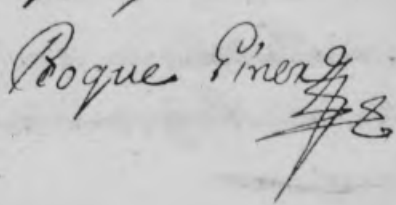 Roque Piner